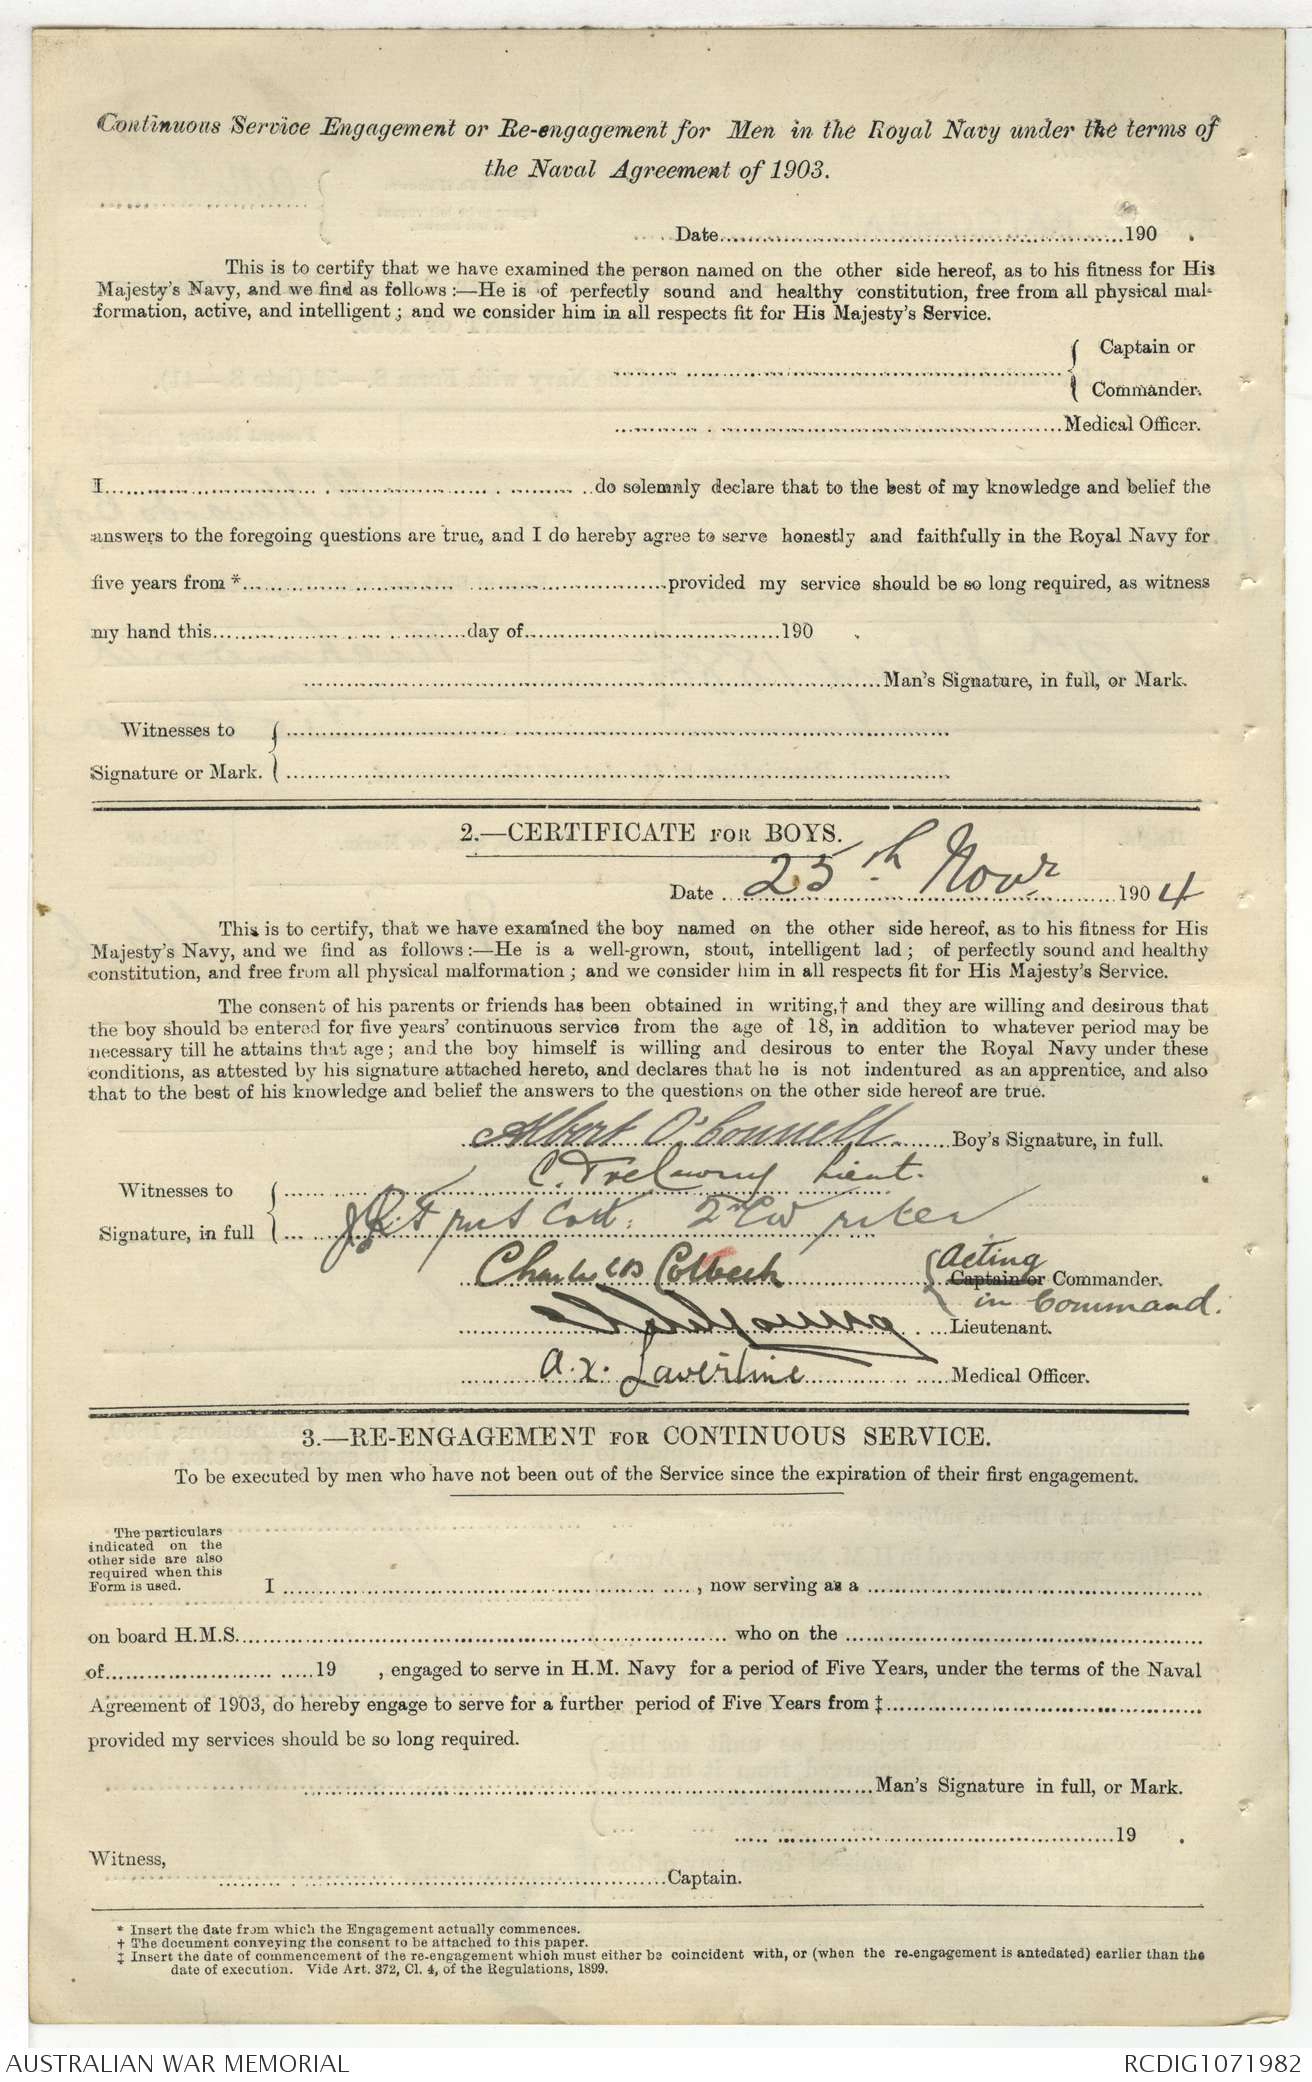 Continuous Service Engagement or Re-engagement for Men in the Royal Navy under the terms of
the Naval Agreement of 1903.
Date 190 .
This is to certify that we have examined the person named on the other side hereof, as to his fitness for His
Majesty's Navy, and we find as follows :—He is of perfectly sound and healthy constitution, free from all physical mal-
formation, active, and intelligent ; and we consider him in all respects fit for His Majesty's Service.
Captain or
Commander.
Medical Officer.
I do solemnly declare that to the best of my knowledge and belief the
answers to the foregoing questions are true, and I do hereby agree to serve honestly and faithfully in the Royal Navy for
five years from * provided my service should be so long required, as witness
my hand this day of 190 .
Man's Signature, in full, or Mark.
Witnesses to
Signature or Mark.
2.—CERTIFICATE FOR BOYS.
Date 25th Novr 1904
This is to certify, that we have examined the boy named on the other side hereof, as to his fitness for His
Majesty's Navy, and we find as follows :—He is a well-grown, stout, intelligent lad ; of perfectly sound and healthy
constitution, and free from all physical malformation ; and we consider him in all respects fit for His Majesty's Service.
The consent of his parents or friends has been obtained in writing,† and they are willing and desirous that
the boy should be entered for five years' continuous service from the age of 18, in addition to whatever period may be
necessary till he attains that age ; and the boy himself is willing and desirous to enter the Royal Navy under these
conditions, as attested by his signature attached hereto, and declares that he is not indentured as an apprentice, and also
that to the best of his knowledge and belief the answers to the questions on the other side hereof are true.
Albert O'Connell Boy's Signature, in full.
C. Trelawny Lieut.
Witnesses to
Signature, in full 2nd Writer
Acting
Charles Colbeck Captain or Commander.
in Command.
Lieutenant.
A. X. Lavertine Medical Officer.
3.—RE-ENGAGEMENT FOR CONTINUOUS SERVICE.
To be executed by men who have not been out of the Service since the expiration of their first engagement.
The particulars
indicated on the
other side are also
required when this
Form is used.
I , now serving as a
on board H.M.S. who on the
of 19 , engaged to serve in H.M. Navy for a period of Five Years, under the terms of the Naval
Agreement of 1903, do hereby engage to serve for a further period of Five Years from ‡
provided my services should be so long required.
Man's Signature in full, or Mark.
19 .
Witness,
Captain.
* Insert the date from which the Engagement actually commences.
† The document conveying the consent to be attached to this paper.
‡ Insert the date of commencement of the re-engagement which must either be coincident with, or (when the re-engagement is antedated) earlier than the
date of execution. Vide Art. 372, Cl. 4, of the Regulations, 1899.
AUSTRALIAN WAR MEMORIAL
RCDIG1071982